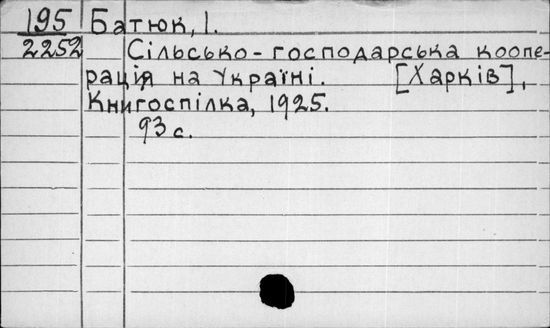 195 Батюк, І.
2252 Сільсько-господарська коопе-
рація на Україні. [Харків],
Книгоспілка, 1925.
93 с.